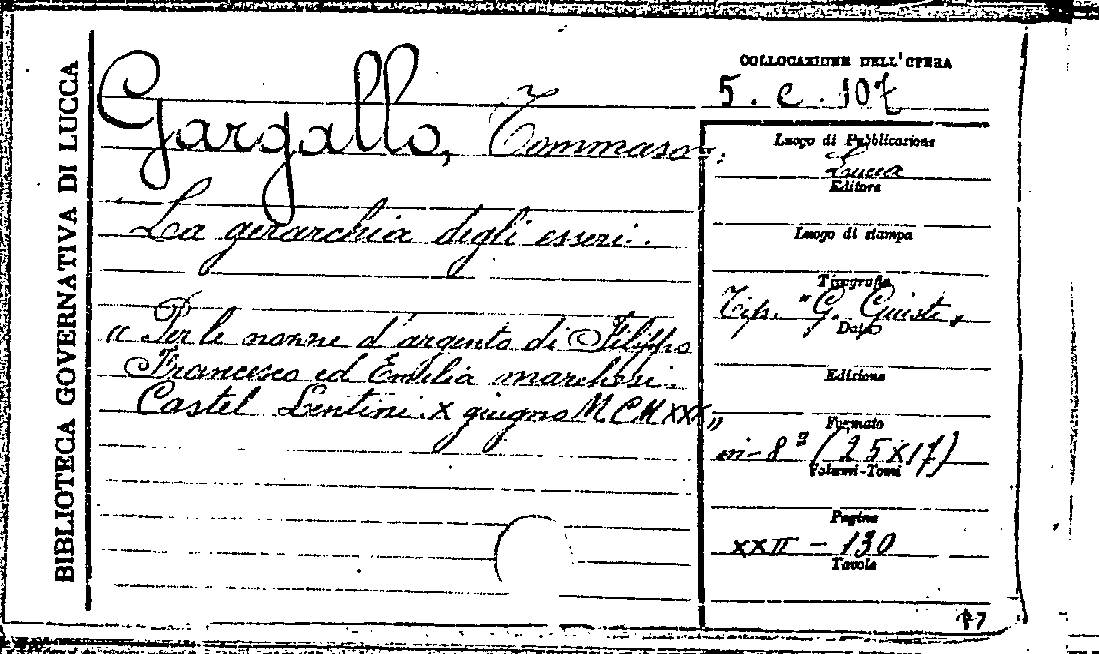 BIBLIOTECA GOVERNATIVA DI LUCCA
Gargallo, Tommaso.
La gerarchia degli esseri.
"Per le nozze d'argento di Filippo
Francesco ed Emilia marchesi
Castel Lentini. X giugno MCMXXX"
COLLOCAZIONE DELL'OPERA
5. c. 107
Luogo di Pubblicazione
Lucca
Editore
Luogo di stampa
Tipografia
Tip. "G. Giusti"
Data
Edizione
Formato
in-8° (25X17)
Volumi-Tomi
Pagine
XXII - 130
Tavole